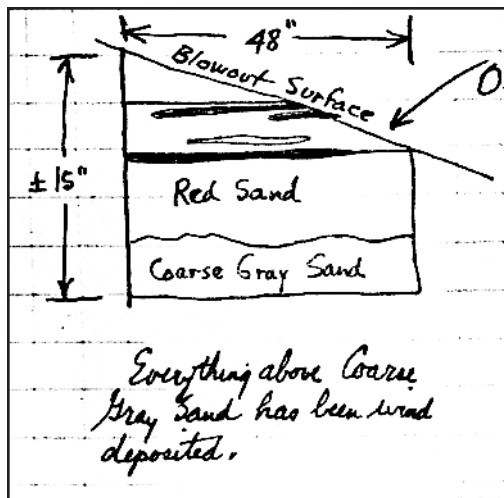 48"
Blowout Surface
± 15"
Red Sand
Coarse Gray Sand
Everything above Coarse
Gray Sand has been wind
deposited.